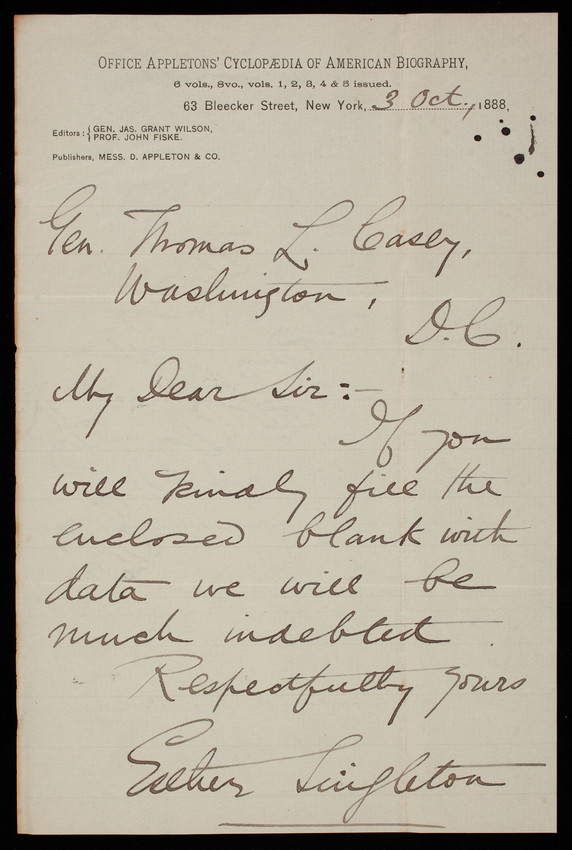 OFFICE APPLETONS' CYCLOPÆDIA OF AMERICAN BIOGRAPHY,
6 vols., 8vo., vols. 1, 2, 3, 4 & 5 issued.
63 Bleecker Street, New York, 3 Oct., 1888,
Editors: { GEN. JAS. GRANT WILSON,
} PROF. JOHN FISKE.
Publishers, MESS. D. APPLETON & CO.
Gen. Thomas L. Casey,
Washington,
D.C.
My Dear Sir:—
If you
will kindly fill the
enclosed blank with
data we will be
much indebted.
Respectfully yours
Esther Singleton